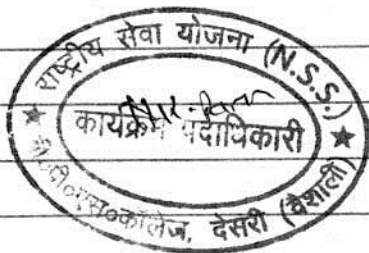 राष्ट्रीय सेवा योजना (N.S.S.)
कार्यक्रम पदाधिकारी
भी०पी०एस०कॉलेज, देसरी (वैशाली)